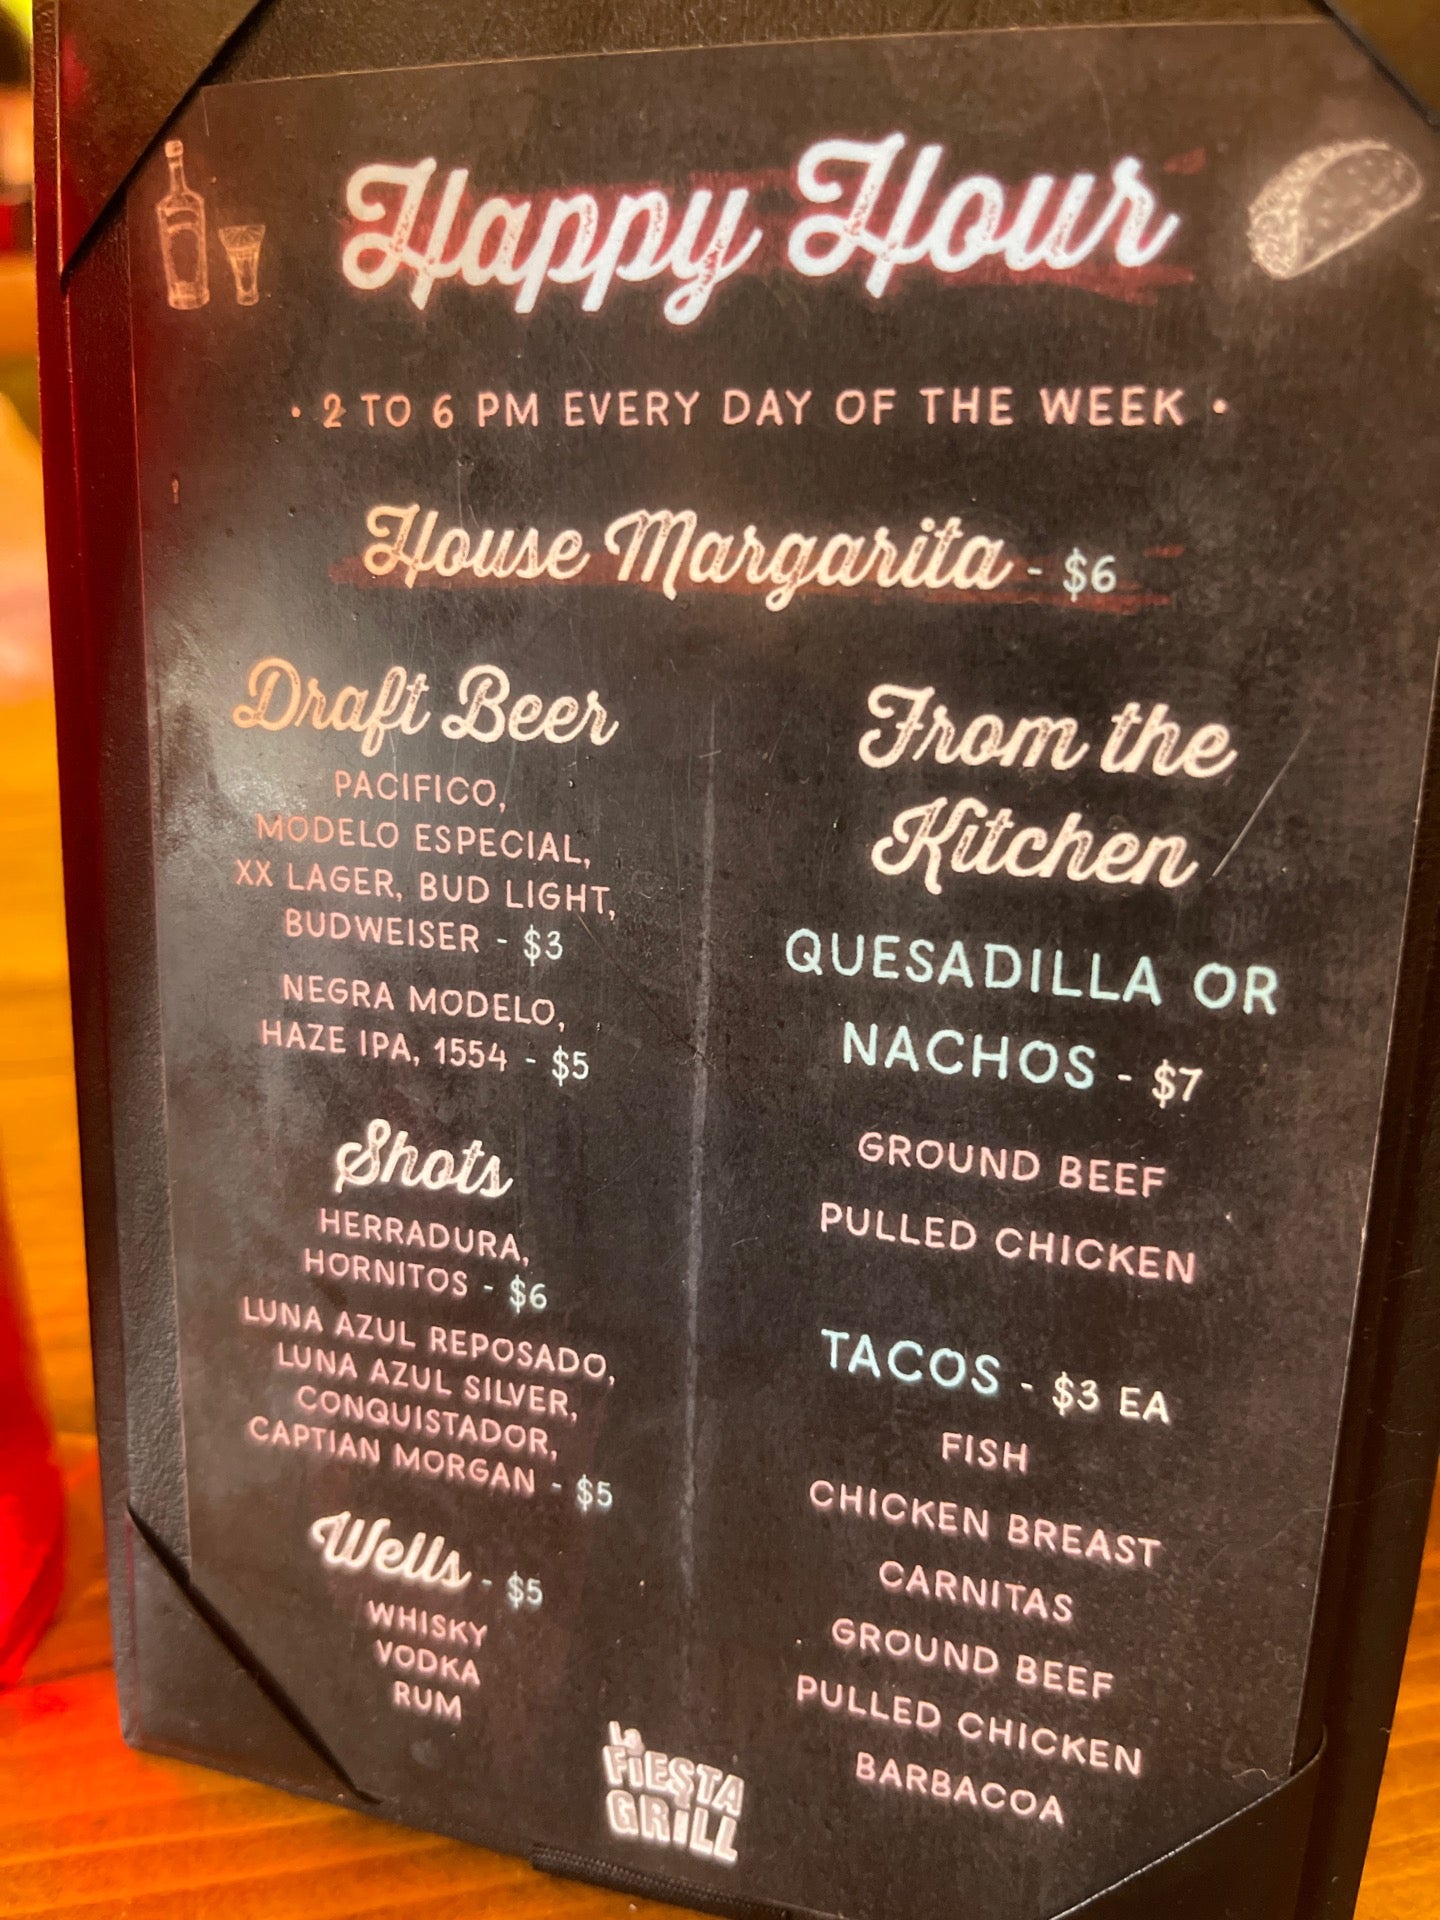 Happy Hour
• 2 TO 6 PM EVERY DAY OF THE WEEK •
House Margarita - $6
Draft Beer
PACIFICO,
MODELO ESPECIAL,
XX LAGER, BUD LIGHT,
BUDWEISER - $3
NEGRA MODELO,
HAZE IPA, 1554 - $5
Shots
HERRADURA,
HORNITOS - $6
LUNA AZUL REPOSADO,
LUNA AZUL SILVER,
CONQUISTADOR,
CAPTIAN MORGAN - $5
Wells - $5
WHISKY
VODKA
RUM
From the
Kitchen
QUESADILLA OR
NACHOS - $7
GROUND BEEF
PULLED CHICKEN
TACOS - $3 EA
FISH
CHICKEN BREAST
CARNITAS
GROUND BEEF
PULLED CHICKEN
BARBACOA
La
FIESTA
GRILL